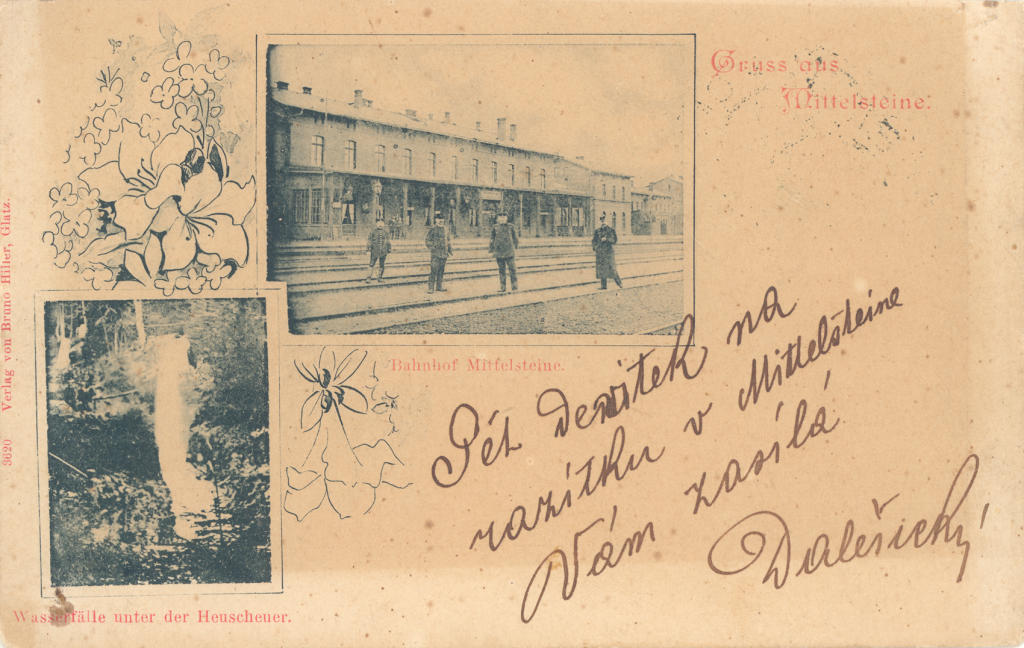 Gruss aus
Mittelsteine.
Bahnhof Mittelsteine.
Pět devítek na
razítku v Mittelsteine
Vám zasílá
Dalešický
Wasserfälle unter der Heuscheuer.
3620 Verlag von Bruno Hiller, Glatz.